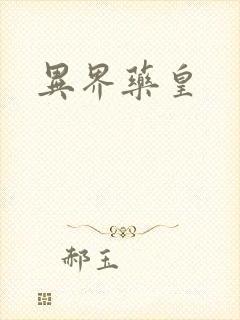 異界藥皇
郝玉